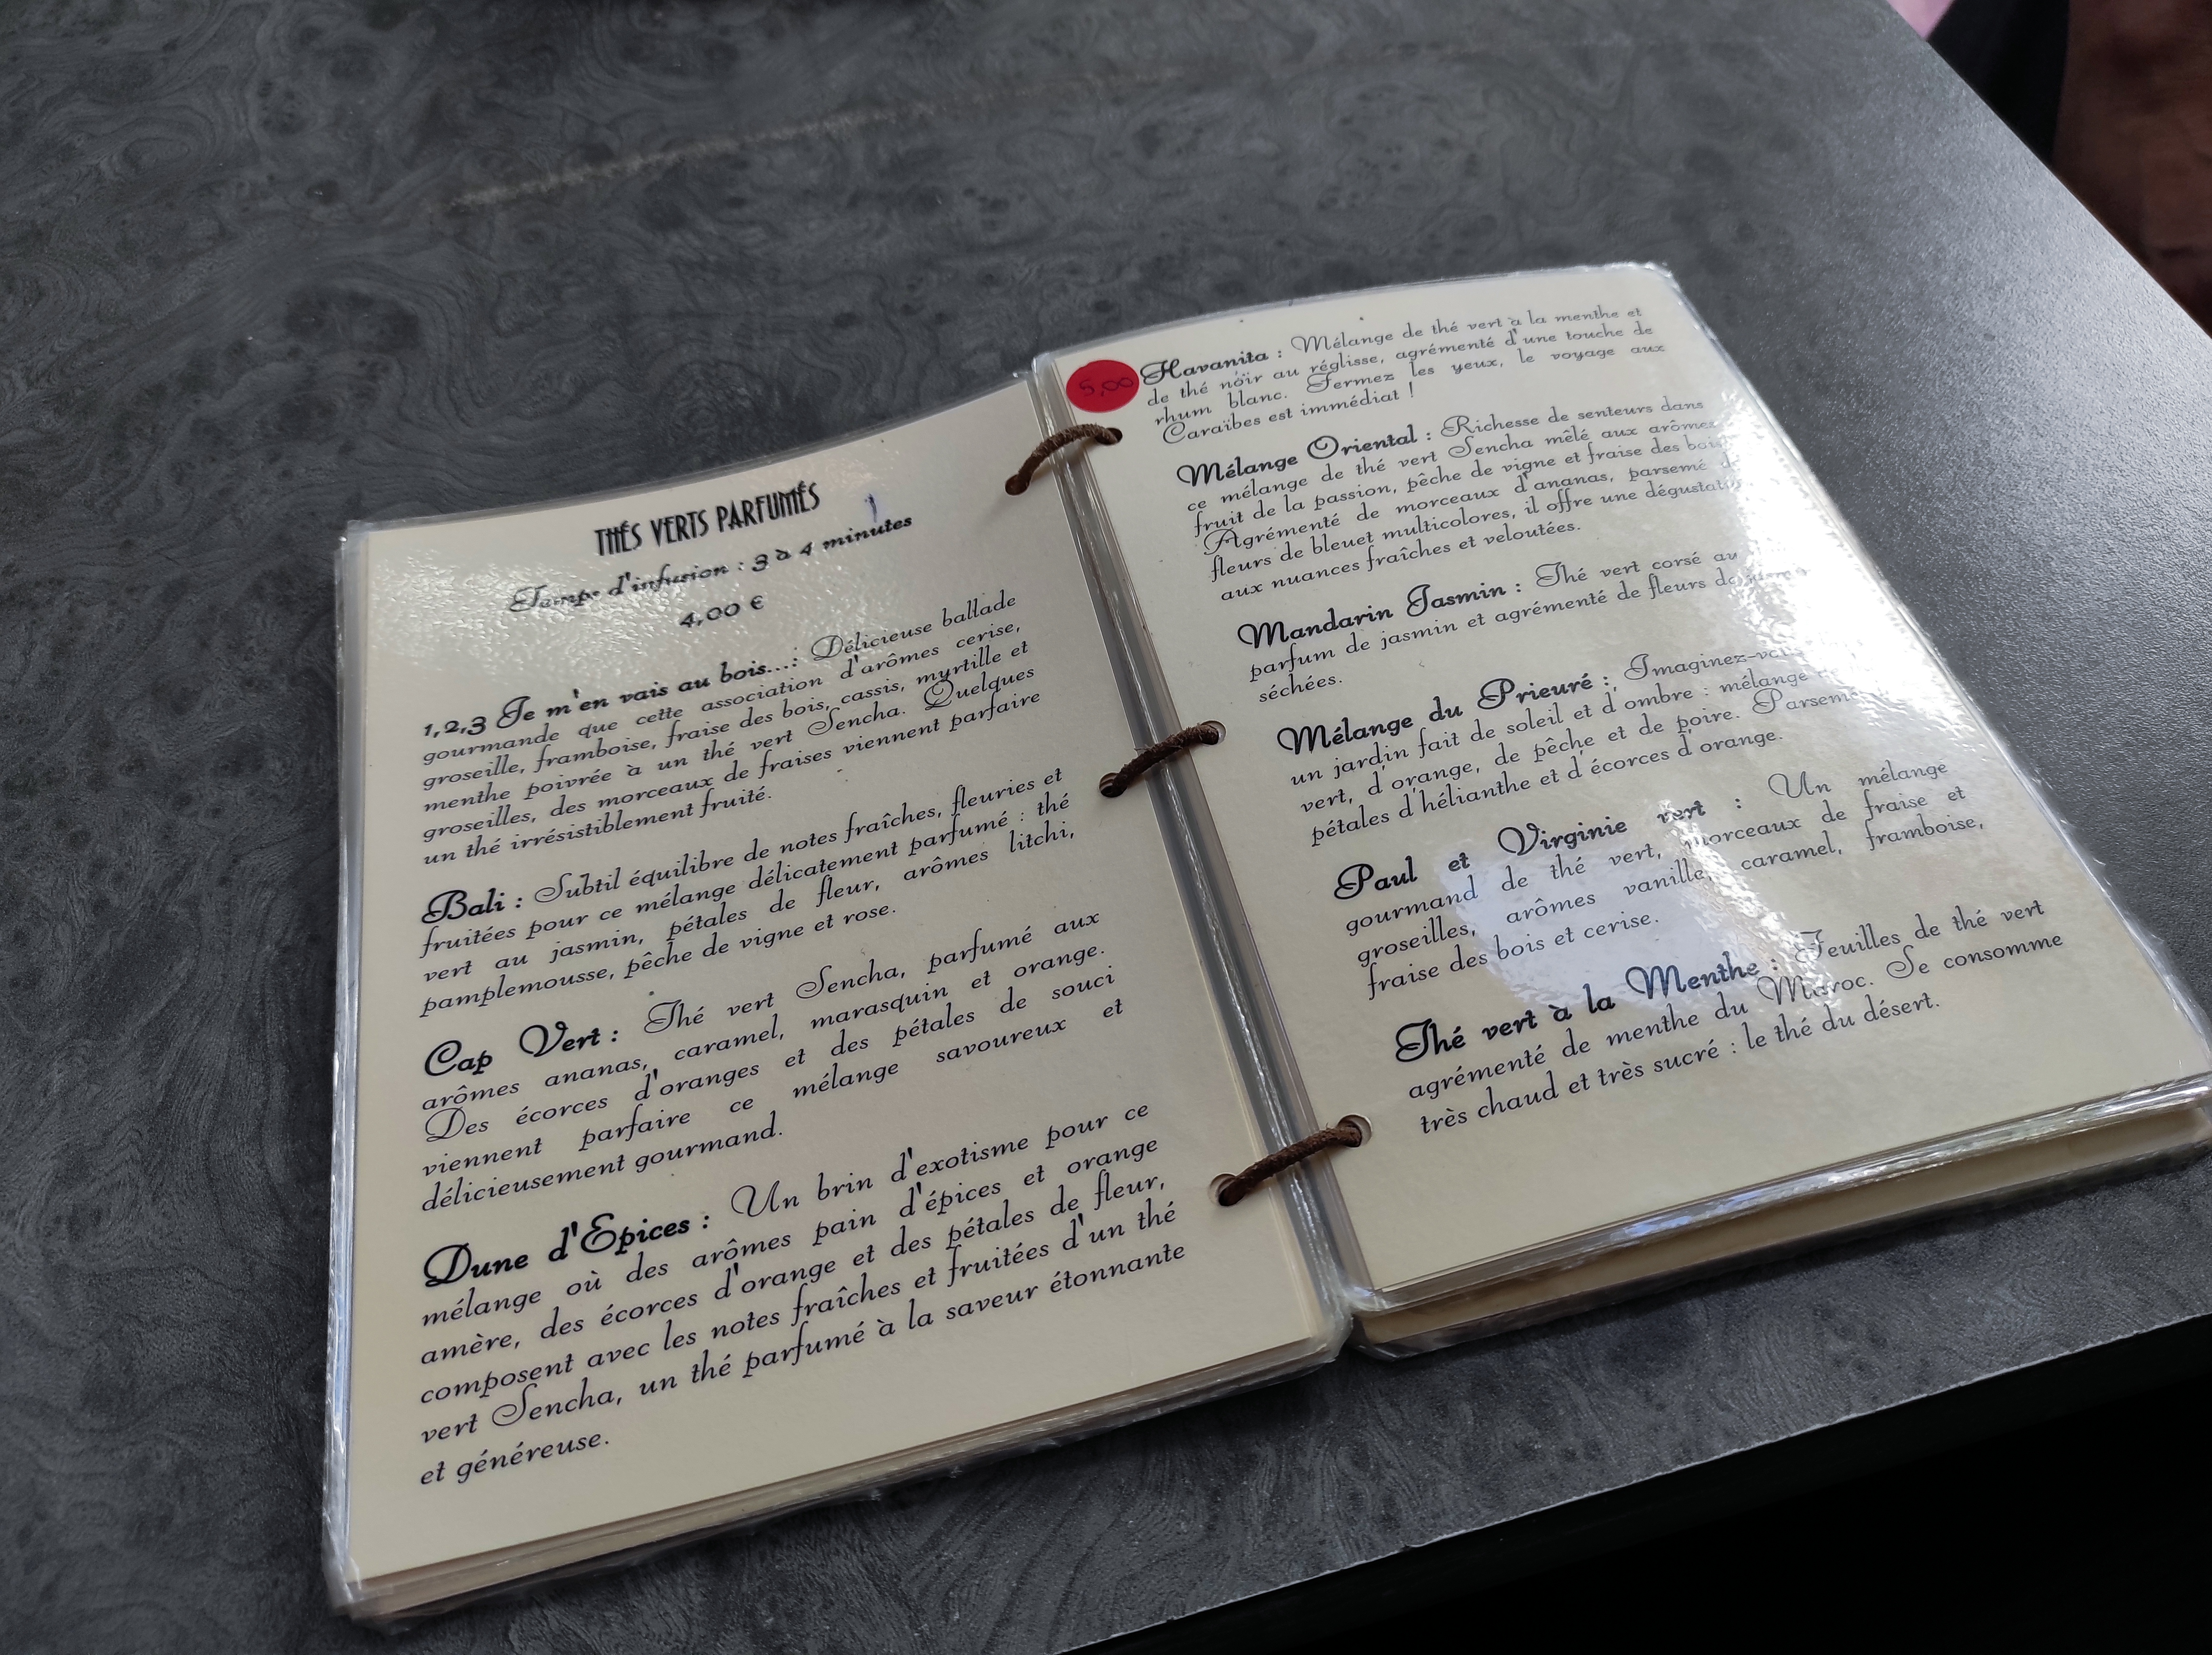 THÉS VERTS PARFUMÉS
Temps d'infusion : 3 à 4 minutes
4,00 €
1,2,3 Je m'en vais au bois...: Délicieuse ballade
gourmande que cette association d'arômes cerise,
groseille, framboise, fraise des bois, cassis, myrtille et
menthe poivrée à un thé vert Sencha. Quelques
groseilles, des morceaux de fraises viennent parfaire
un thé irrésistiblement fruité.
Bali : Subtil équilibre de notes fraîches, fleuries et
fruitées pour ce mélange délicatement parfumé : thé
vert au jasmin, pétales de fleur, arômes litchi,
pamplemousse, pêche de vigne et rose.
Cap Vert : Thé vert Sencha, parfumé aux
arômes ananas, caramel, marasquin et orange.
Des écorces d'oranges et des pétales de souci
viennent parfaire ce mélange savoureux et
délicieusement gourmand.
Dune d'Epices : Un brin d'exotisme pour ce
mélange où des arômes pain d'épices et orange
amère, des écorces d'orange et des pétales de fleur,
composent avec les notes fraîches et fruitées d'un thé
vert Sencha, un thé parfumé à la saveur étonnante
et généreuse.
5,00
Havanita : Mélange de thé vert à la menthe et
de thé noir au réglisse, agrémenté d'une touche de
rhum blanc. Fermez les yeux, le voyage aux
Caraïbes est immédiat !
Mélange Oriental : Richesse de senteurs dans
ce mélange de thé vert Sencha mêlé aux arômes
fruit de la passion, pêche de vigne et fraise des bois
Agrémenté de morceaux d'ananas, parsemé
fleurs de bleuet multicolores, il offre une
aux nuances fraîches et veloutées.
Mandarin Jasmin : Thé vert corsé au
parfum de jasmin et agrémenté de fleurs
séchées.
Mélange du Prieuré :
un jardin fait de soleil et d'ombre : mélange
vert, d'orange, de pêche et de poire.
pétales d'hélianthe et d'écorces d'orange.
Paul et Virginie vert : Un mélange
gourmand de thé vert, morceaux de fraise et
groseilles, arômes vanille, caramel, framboise,
fraise des bois et cerise.
Thé vert à la Menthe : Feuilles de thé vert
agrémenté de menthe du Maroc. Se consomme
très chaud et très sucré : le thé du désert.